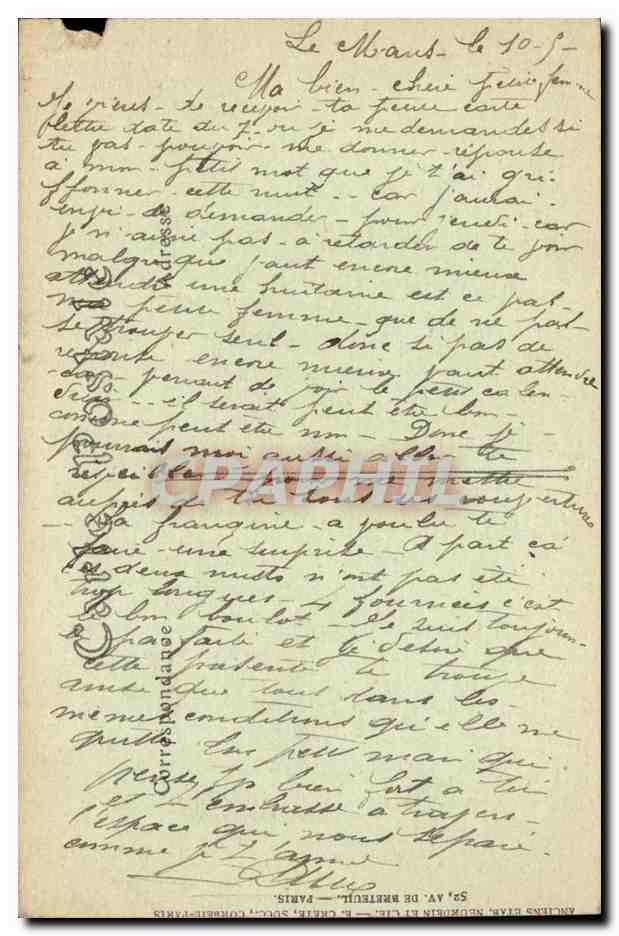 Le Mans - le 10-5-
Ma bien - chère petite femme
Je viens - de recevoir - ta petite carte
lettre daté du 7 - ou je me demandes si
tu vas - pouvoir - me donner - réponse
à mon - petit mot que je t'ai gri-
ffonner - cette nuit - - car j'aurai -
- de demander - pour - car
je n'aime pas - a retarder de te voir
malgré que vaut encore mieux
attendre une huitaine est ce pas -
ma petite femme - que de ne pas -
se trouver seul - donc si pas de
réponse encore mieux vaut attendre
- car - venant de voir le petit calen-
drier - - - il serait peut être bon -
comme peut etre non - Donc je -
pourrais moi aussi aller te
me mettre
auprès de toi sous les couvertures
- - La frangine - a voulu te
faire - une surprise - A part ça
les deux nuits n'ont pas été
trop longues -
le bon boulot - Je suis toujours -
parfait et te desire que
cette présente te trouve
ainsi que tous dans les -
même conditions qu'elle me
quitte Ton petit mari qui
pense bien fort a toi
et t'embrasse a travers -
l'espace qui nous sépare -
comme je t'aime
Carte Postale
Correspondance
Adresse
CPAPHIL
52, AV. DE BRETEUIL. — PARIS.
ANCIENS ETAB. NEURDEIN ET CIE. — E. CRÉTÉ, SUCC., CORBEIL-PARIS